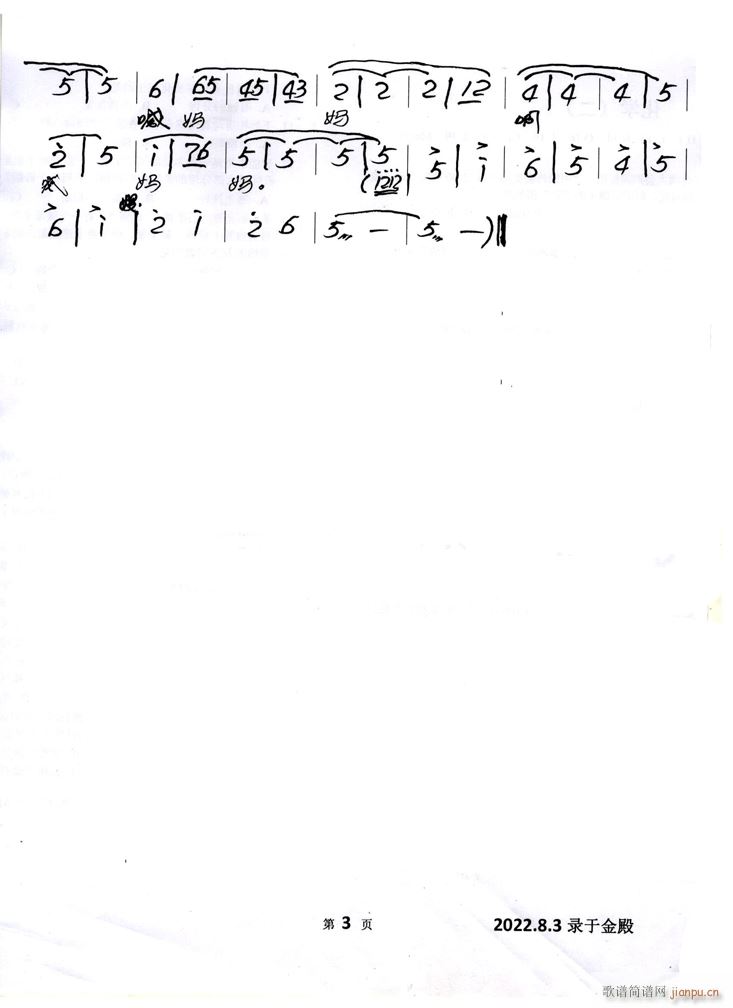 5 | 5 | 6 | 65 | 45 | 43 | 2 | 2 | 2 | 12 | 4 | 4 | 4 | 5 |
喊 妈 妈 啊
2̇ | 5 | i | 76 | 5 | 5 | 5 | 5 (1̇2̇1̇2̇ | 5 | i | 6 | 5 | 4 | 5
喊 妈 妈。
6 | i | 2̇ i | 2̇ 6 | 5 — | 5 — )‖
第 3 页 2022.8.3 录于金殿
歌谱简谱网
jianpu.cn